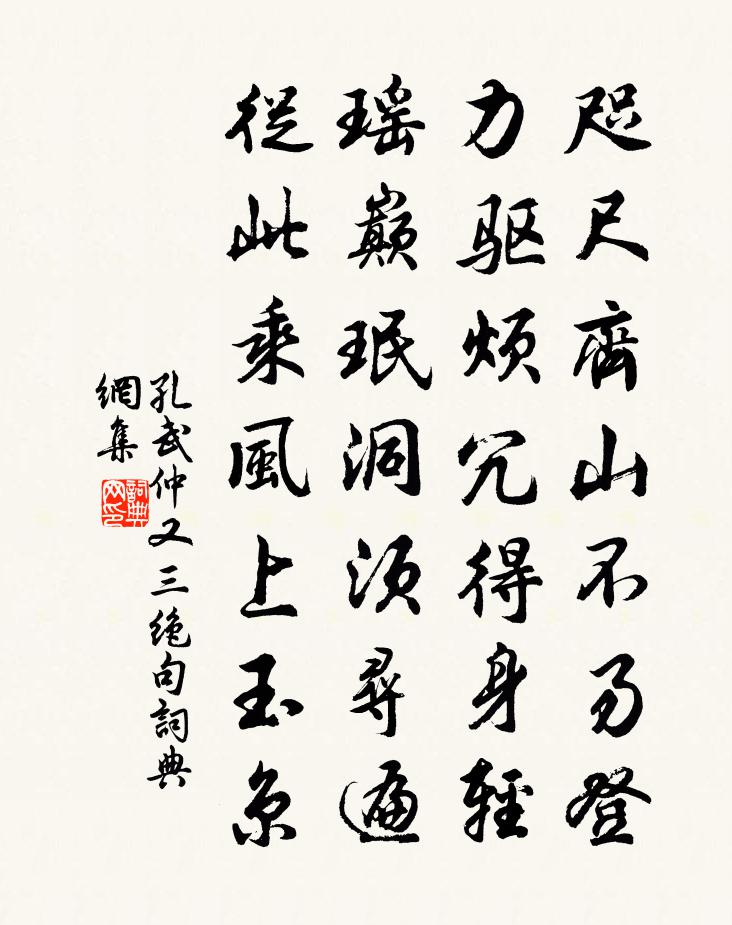 咫尺齊山不易登
力驱烦冗得身輕
瑶巅珉洞须尋遍
從此乘風上玉京
孔武仲又三绝句詞典
網集
詞典
网印